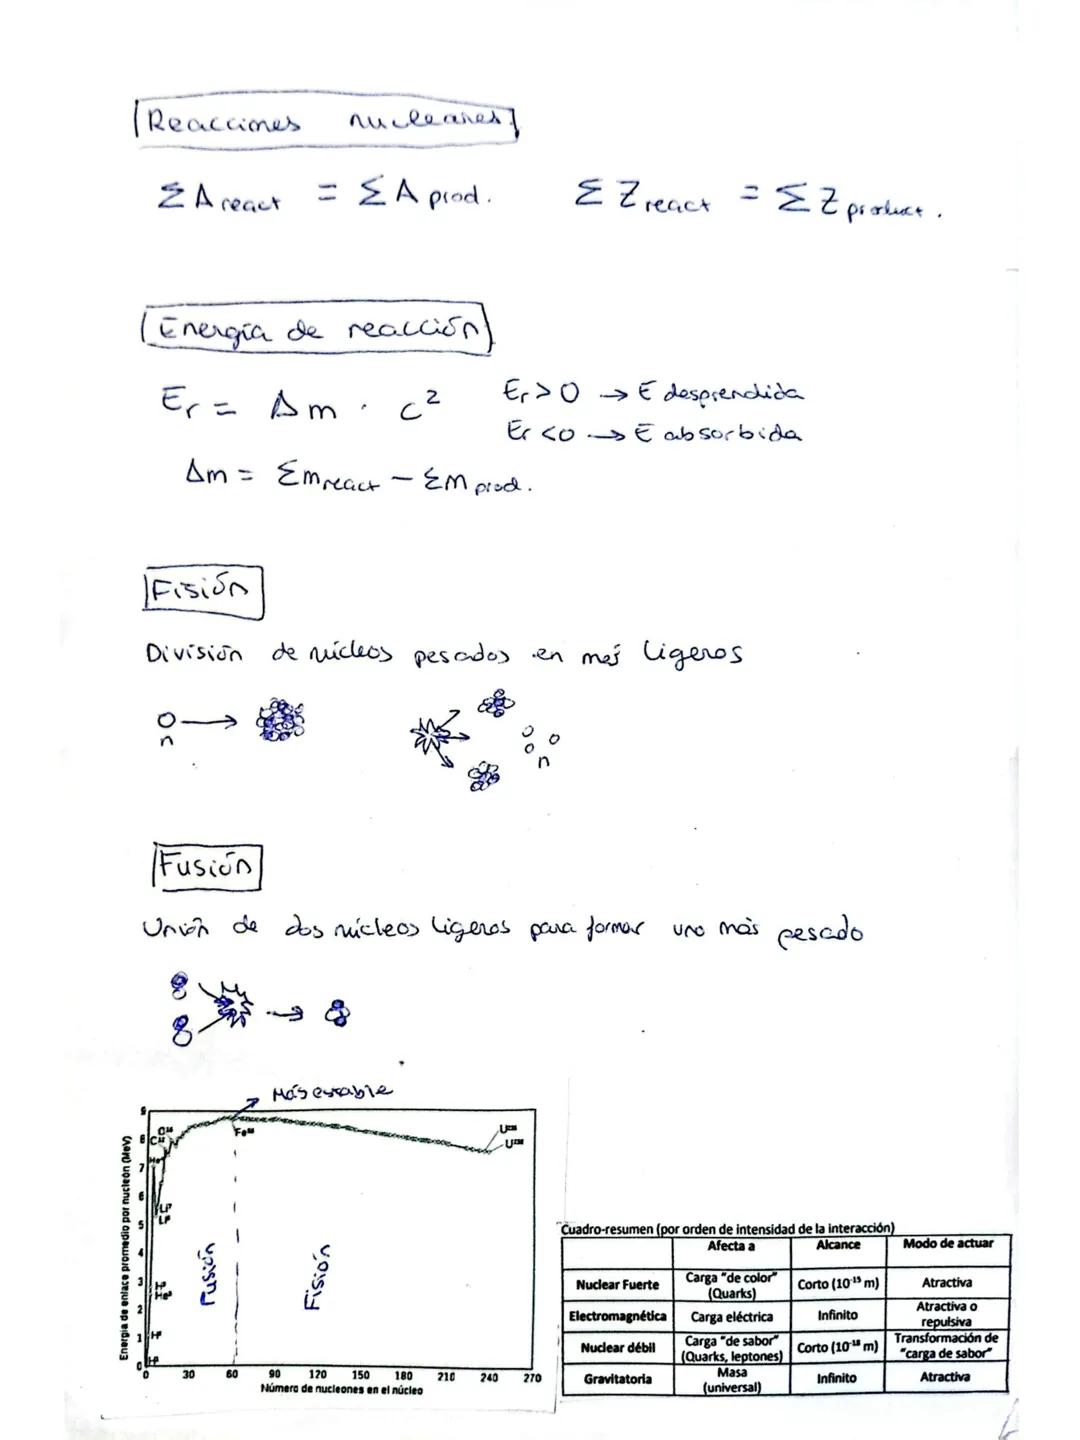 Reacciones nucleares
Σ A react = Σ A prod. Σ Z react = Σ Z product.
Energía de reacción
Er = Δm · c² Er > 0 → E desprendida
Er < 0 → E absorbida
Δm = Σm react − Σm prod.
Fisión
División de núcleos pesados en más ligeros
n
n
Fusión
Unión de dos núcleos ligeros para formar uno más pesado
Más estable
Energía de enlace promedio por nucleón (MeV)
9
8
7
6
5
4
3
2
1
0
O¹⁶
C¹²
He⁴
Li⁷
Li⁶
H³
He³
H²
H¹
Fe⁵⁶
U²³⁵
U²³⁸
Fusión
Fisión
0 30 60 90 120 150 180 210 240 270
Número de nucleones en el núcleo
Cuadro-resumen (por orden de intensidad de la interacción)
Afecta a Alcance Modo de actuar
Nuclear Fuerte Carga "de color" (Quarks) Corto (10⁻¹⁵ m) Atractiva
Electromagnética Carga eléctrica Infinito Atractiva o repulsiva
Nuclear débil Carga "de sabor" (Quarks, leptones) Corto (10⁻¹⁸ m) Transformación de "carga de sabor"
Gravitatoria Masa (universal) Infinito Atractiva